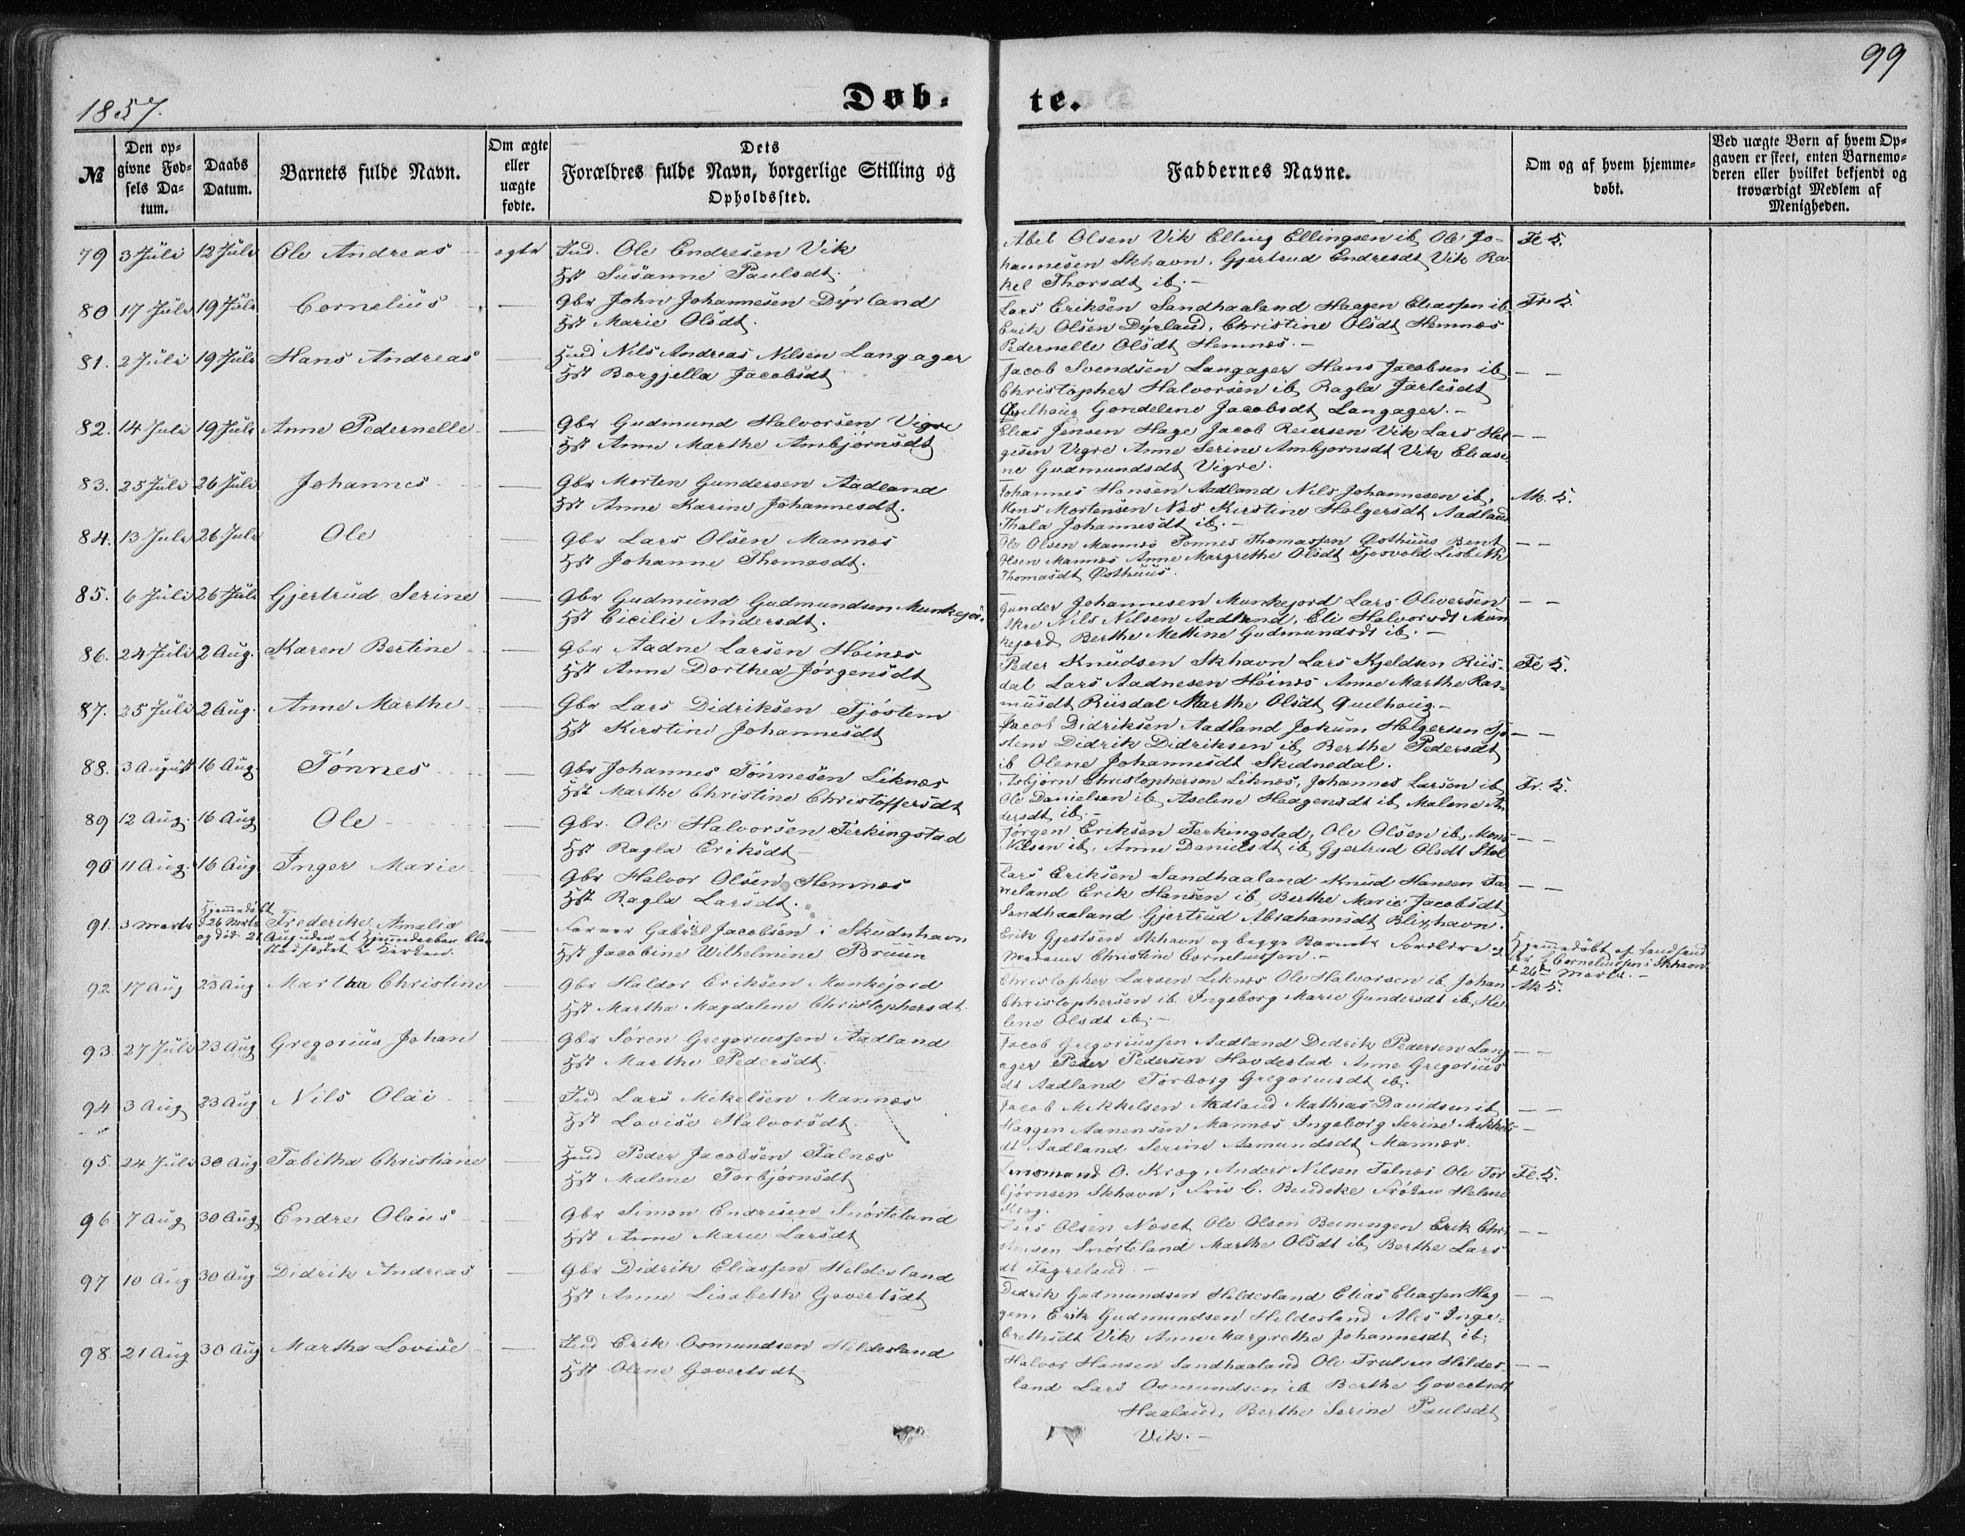 99
1857.
Døb-
te.
№
Den op-
givne Fød-
sels Da-
tum.
Daabs
Datum.
Barnets fulde Navn.
Om ægte
eller
uægte
fødte.
Dets
Forældres fulde Navn, borgerlige Stilling og
Opholdssted.
Faddernes Navne.
Om og af hvem hjemme-
døbt.
Ved uægte Børn af hvem Op-
gaven er skeet, enten Barnemo-
deren eller hvilket bekjendt og
troværdigt Medlem af
Menigheden.
79 3 Juli 12 Juli Ole Andreas ægte Ind. Ole Endresen Vik
Hst Susanne Paulsdt.
Abel Olsen Vik Elling Ellingsen ib, Ole Jo-
hannesen Skhavn, Gjertrud Endresdt Vik Ra-
kel Thorsdt ib.-
80 17 Juli 19 Juli Cornelius — Gbr John Johannesen Dyrland
Hst Marie Olsdt.
Lars Eriksen Sandhaaland Haagen Eliassen ib
Erik Olsen Dyrland, Christine Olsdt Hemnæs
Pedernelle Olsdt Hemnæs.-
81. 2 Juli 19 Juli Hans Andreas — Hmd Nils Andreas Nilsen Langager
Hst Borgjella Jacobsdt
Jacob Svendsen Langager Hans Jacobsen ib — —
Christopher Halvorsen ib, Ragla Jarlesdt
Qvelhoug Gondelene Jacobsdt Langager.-
82. 14 Juli 19 Juli Anne Pedernelle — Gbr Gudmund Halvorsen Vigre
Hst Anne Marthe Ambjørnsdt
Elias Jensen Hage Jacob Reiersen Vik Lars Hel- — —
gesen Vigre Anne Serine Ambjørnsdt Vik Eliase-
ne Gudmundsdt Vigre.
83. 25 Juli 26 Juli Johannes — Gbr Morten Gundersen Aadland
Hst Anne Karine Johannesdt.
Johannes Hansen Aadland Nils Johannesen ib,
Mons Mortensen Næs Kirstine Holgersdt Aadland
Thala Johannesdt ib.-
84. 13 Juli 26 Juli Ole — Gbr Lars Olsen Mannes
Hst Johanne Thomasdt.
Ole Olsen Mannes Tønnes Thomassen Østhuus Bent — —
Olsen Mannes Anne Margrethe Olsdt Tjosvold Lisbeth
Thomasdt Østhuus.
85. 6 Juli 26 Juli Gjertrud Serine — Gbr Gudmund Gudmundsen Munkejor.
Hst Cicilie Andersdt.
Gunder Johannesen Munkejord Lars Oliversen — —
Nils Nilsen Aadland, Eli Halvorsdt Mun
kejord Berthe Mettine Gudmundsdt ib.-
86. 24 Juli 2 Aug. Karen Bertine — Gbr Aadne Larsen Høinæs
Hst Anne Dorthea Jørgensdt
Peder Knudsen Skhavn Lars Kjeldsen Riis-
dal Lars Aadnesen Høines Anne Marthe Ras-
musdt Riisdal Marthe Olsdt Quelhoug.-
87. 25 Juli 2 Aug. Anne Marthe — Gbr Lars Didriksen Tjøstem
Hst Kirstine Johannesdt
Jacob Didriksen Aadland Jokum Holgersen Tjø- — —
stem Didrik Didriksen ib Berthe Pedersdt
ib Olene Johannesdt Skidnedal.
88. 3 August 16 Aug. Tønnes — Gbr Johannes Tønnesen Liknæs
Hst Marthe Christine Christoffersdt
Asbjørn Christophersen Liknes, Johannes Larsen ib
Ole Danielsen ib, Aselene Haagensdt ib, Malene An
dersdt ib.-
89 12 Aug. 16 Aug Ole — Gbr. Ole Halvorsen Ferkingstad
Hst Ragla Eriksdt
Jørgen Eriksen Ferkingstad, Ole Olsen ib, Mons — —
Nilsen ib, Anne Danielsdt ib, Gjertrud Olsdt Stol
90 11 Aug. 16 Aug Inger Marie — Gbr Halvor Olsen Hemnæs
Hst Ragla Larsdt.
Lars Eriksen Sandhaaland Knud Hansen — —
Erik Hansen ib Berthe Marie Jacobsdt
Sandhaaland Gjertrud Abrahamsdt Blixhavn.
91. 3 Marts Hjemmedøbt
26 Marts
Frederikke Amalia
Farver Gabriel Jacobsen i Skudnhavn
Hst Jacobine Wilhelmine Bruun
Erik Gjertsen Skhavn og begge Barnets Forældre
Madame Christine Corneliussen.-
Hjemmedøbt af
Corneliussen i Skhavn
26 Marts.-
92 17 Aug 23 Aug Martha Christine — Gbr Haldor Eriksen Munkejord
Hst Martha Magdalene Christophersdt.
Christopher Larsen Liknes Ole Halvorsen ib, Johan
Christophersen ib Ingeborg Marie Gundersdt ib, He-
lene Olsdt ib.-
93. 27 Juli 23 Aug Gregorius Johan — Gbr Søren Gregoriussen Aadland
Hst Marthe Pedersdt.
Jacob Gregoriussen Aadland Didrik Pedersen Lang — —
ager Peder Pedersen Hovdestad Anne Gregorius
dt Aadland Torborg Gregoriusdt ib.
94 3 Aug 23 Aug Nils Olai — Ind Lars Mikelsen Mannes
Hst Lovise Halvorsdt.
Jacob Mikkelsen Aadland Mathias Davidsen ib — —
Haagen Aanensen Mannes Ingeborg Serine Mikkels
dt Aadland Serine Asmundsdt Mannes.
95. 24 Juli 30 Aug Tabitha Christiane — Hmd Peder Jacobsen Falnæs
Hst Malene Torbjørnsdt.
O. Krog, Anders Nilsen Falnæs Ole Tor
bjørnsen Skhavn, C. Bendeke Frøken Helene
Krog.
96 7 Aug 30 Aug Endre Olaus — Gbr Simon Endresen Snørteland
Hst Anne Marie Larsdt
Lars Olsen Næset Ole Olsen Beiningen Erik — —
Snørteland Marthe Olsdt ib, Berthe Lars
dt Fagreland.-
97 10 Aug 30 Aug Didrik Andreas — Gbr Didrik Eliassen Hildesland
Hst Anne Lisabeth Govertsdt
Didrik Gudmundsen Hildesland Elias Eliassen Hag — —
gem Erik Gudmundsen Hildesland Alis Inge-
brethsdt Vik Anne Margrethe Johannesdt ib.
98. 21 Aug 30 Aug Martha Lovise — Ind Erik Osmundsen Hildesland
Hst Olene Govertsdt
Halvor Hansen Sandhaaland Ole Trulsen Hildes- — —
land Lars Osmundsen ib Berthe Govertsdt
Haaland, Berthe Serine Paulsdt
Vik.-